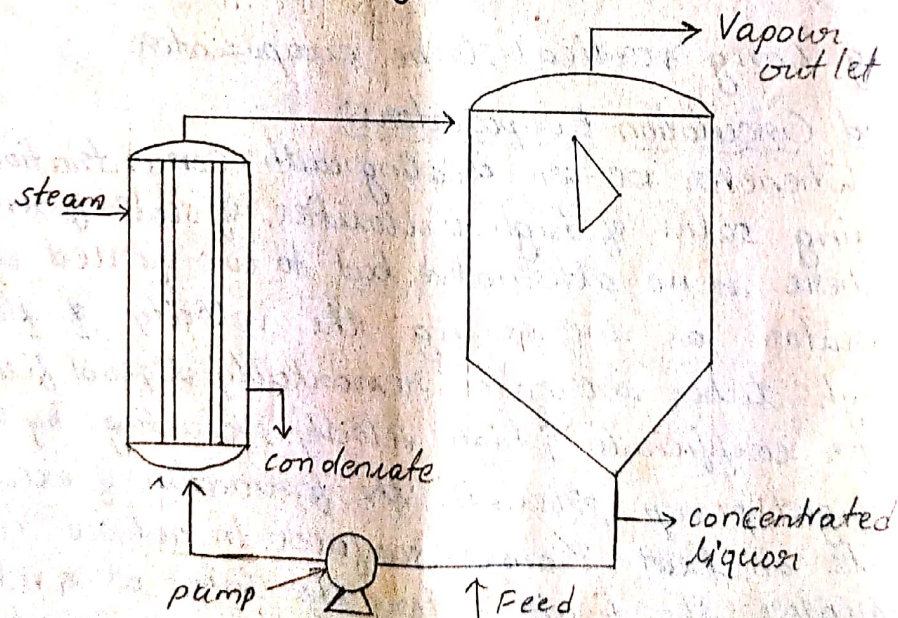 Vapour
outlet
steam
condensate
concentrated
liquor
pump
Feed